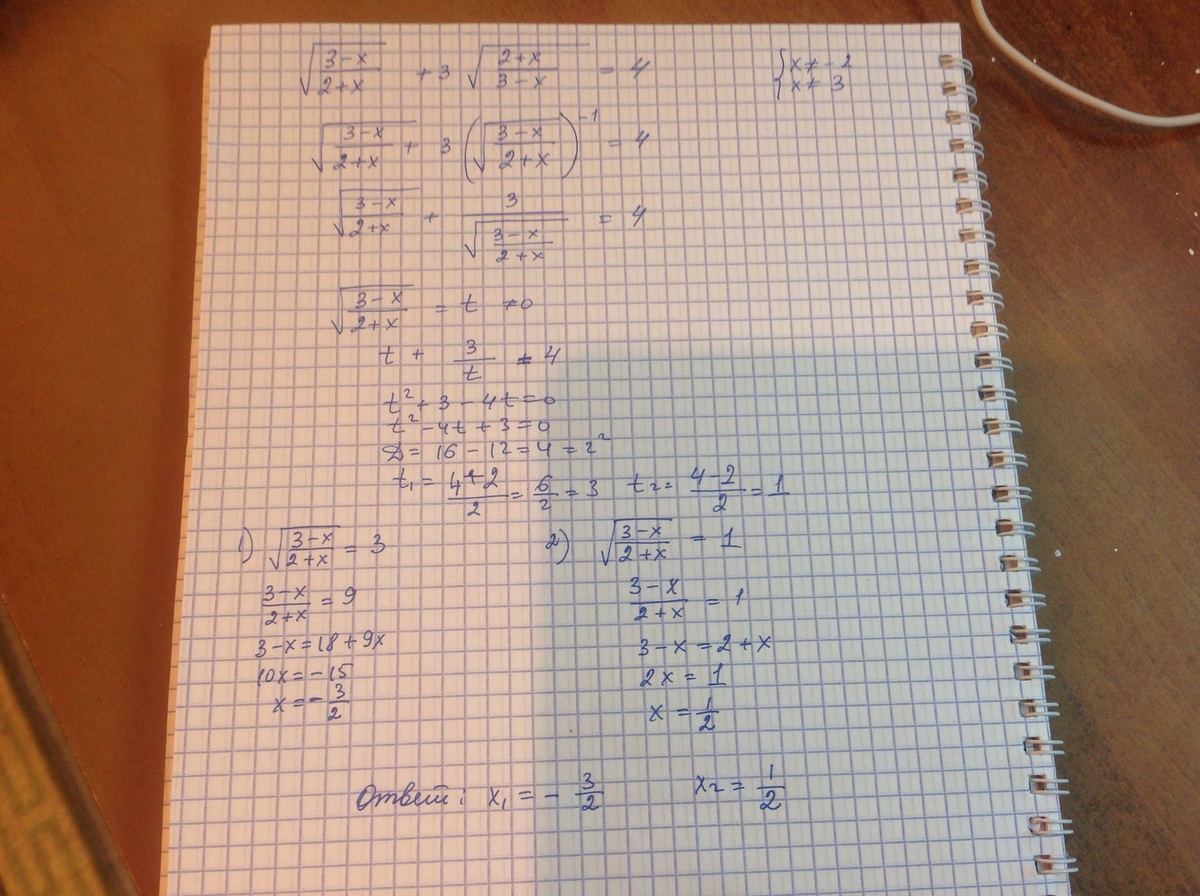 √((3-x)/(2+x)) + 3 √((2+x)/(3-x)) = 4 { x ≠ -2
x ≠ 3
√((3-x)/(2+x)) + 3 (√((3-x)/(2+x)))^-1 = 4
√((3-x)/(2+x)) + 3/√((3-x)/(2+x)) = 4
√((3-x)/(2+x)) = t ≠0
t + 3/t = 4
t² + 3 - 4t = 0
t² - 4t + 3 = 0
D = 16 - 12 = 4 = 2²
t₁ = (4+2)/2 = 6/2 = 3 t₂ = (4-2)/2 = 1
1) √((3-x)/(2+x)) = 3 2) √((3-x)/(2+x)) = 1
(3-x)/(2+x) = 9 (3-x)/(2+x) = 1
3-x = 18 + 9x 3-x = 2+x
10x = -15 2x = 1
x = -3/2 x = 1/2
Ответ: x₁ = - 3/2 x₂ = 1/2